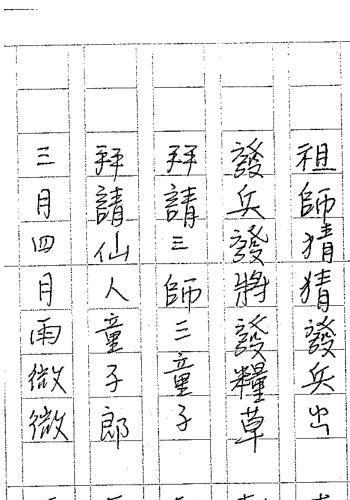 祖師猜猜發兵出
發兵發將發糧草
拜請三師三童子
拜請仙人童子郎
三月四月雨微微